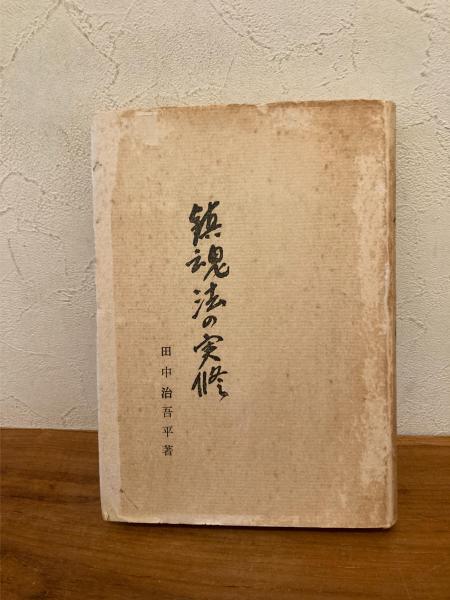 鎮魂法の実修
田中治吾平著